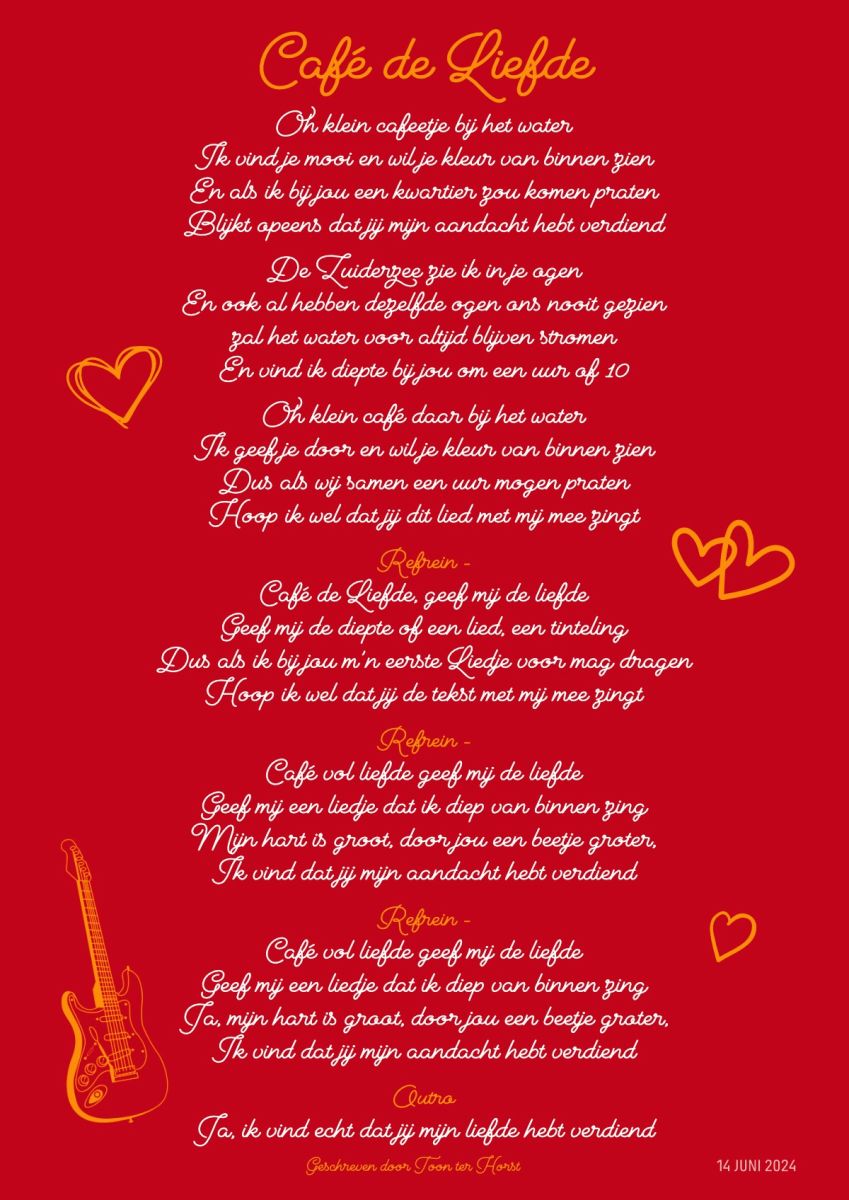 Café de Liefde
Oh klein cafeetje bij het water
Ik vind je mooi en wil je kleur van binnen zien
En als ik bij jou een kwartier zou komen praten
Blijkt opeens dat jij mijn aandacht hebt verdiend
De Zuiderzee zie ik in je ogen
En ook al hebben dezelfde ogen ons nooit gezien
zal het water voor altijd blijven stromen
En vind ik diepte bij jou om een uur of 10
Oh klein café daar bij het water
Ik geef je door en wil je kleur van binnen zien
Dus als wij samen een uur mogen praten
Hoop ik wel dat jij dit lied met mij mee zingt
Refrein -
Café de Liefde, geef mij de liefde
Geef mij de diepte of een lied, een tinteling
Dus als ik bij jou m'n eerste Liedje voor mag dragen
Hoop ik wel dat jij de tekst met mij mee zingt
Refrein -
Café vol liefde geef mij de liefde
Geef mij een liedje dat ik diep van binnen zing
Mijn hart is groot, door jou een beetje groter,
Ik vind dat jij mijn aandacht hebt verdiend
Refrein -
Café vol liefde geef mij de liefde
Geef mij een liedje dat ik diep van binnen zing
Ja, mijn hart is groot, door jou een beetje groter,
Ik vind dat jij mijn aandacht hebt verdiend
Outro
Ja, ik vind echt dat jij mijn liefde hebt verdiend
Geschreven door Toon ter Horst
14 JUNI 2024